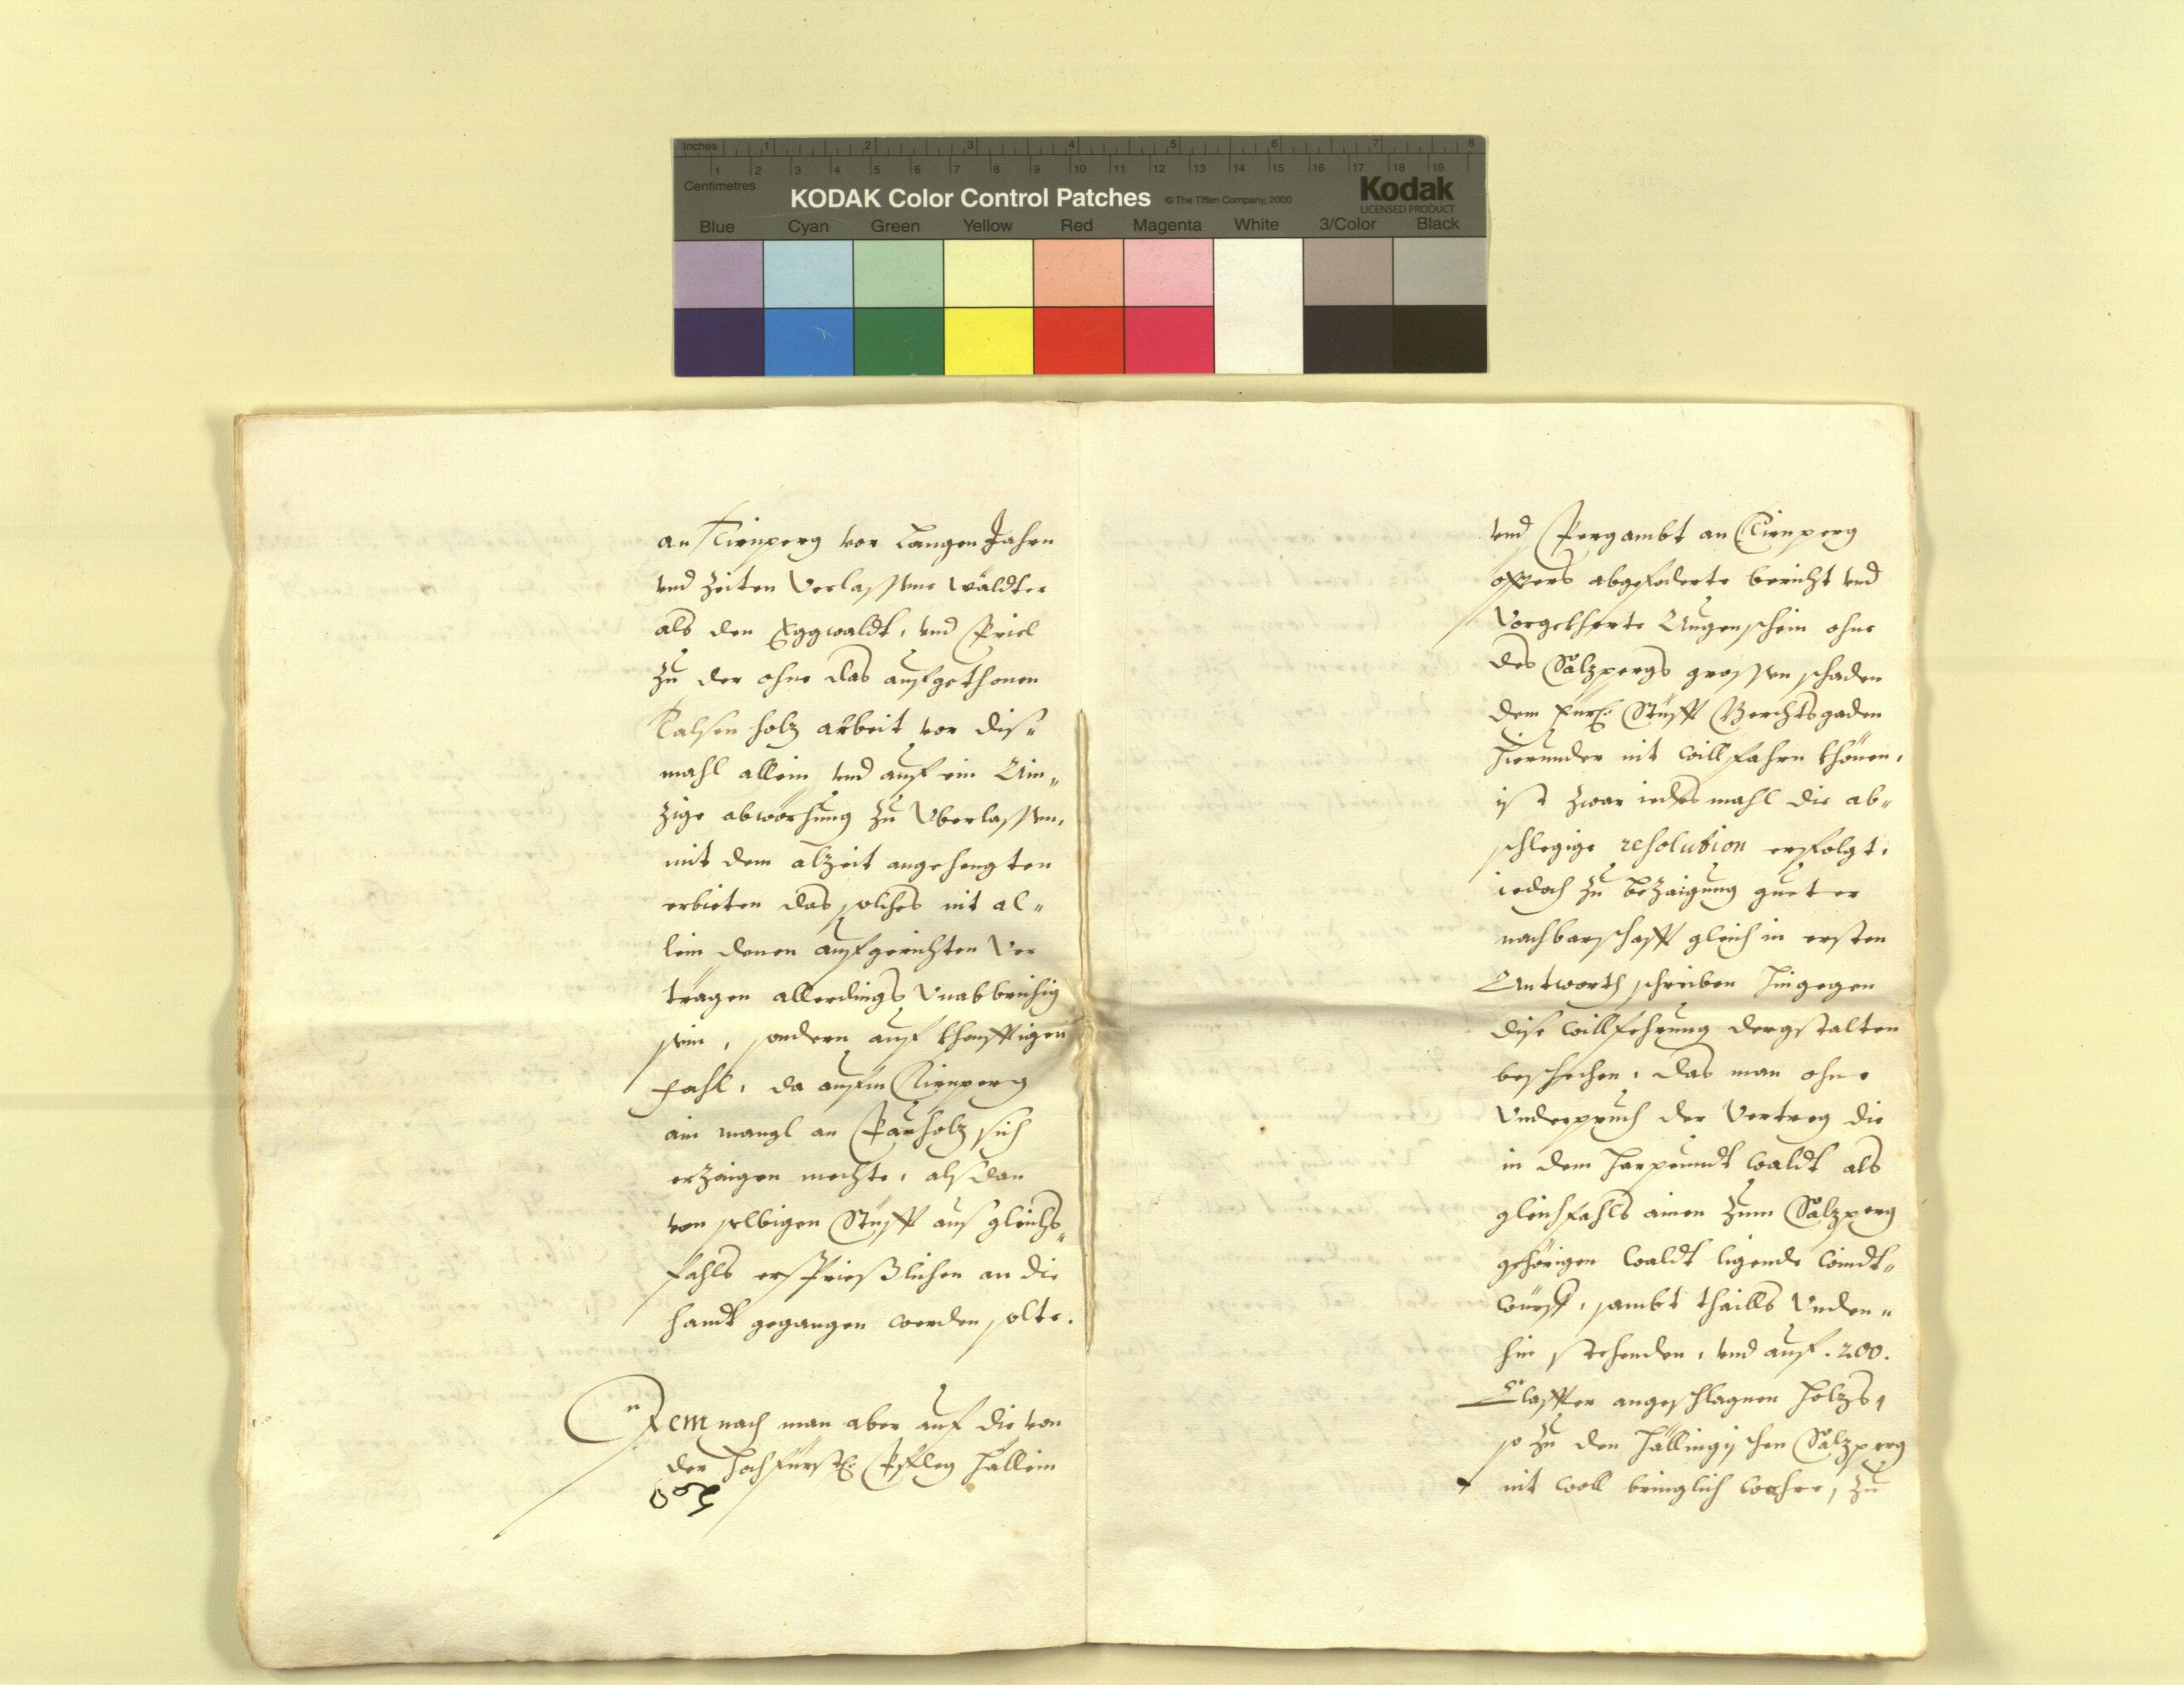 Inches 1 2 3 4 5 6 7 8
1 2 3 4 5 6 7 8 9 10 11 12 13 14 15 16 17 18 19
Centimetres
KODAK Color Control Patches © The Tiffen Company, 2000 Kodak
LICENSED PRODUCT
Blue Cyan Green Yellow Red Magenta White 3/Color Black
an Türnperg vor Langen Jahrn
vnd Zeiten Verlassene wäldter
als den Eggwaldt, vnd Priel
zu der ohne das aufgethonen
holz arbeit vor dis„
mahl allein vnd auf ein Ain„
zige abwörhung zu Vberlassen,
mit dem alzeit angehengten
erbieten das solches nit al„
lein denen aufgerichten Ver
trägen allerdings Vnabbrichig
sein, sondern auf khonfftigen
fahl, da aufm Türnperg
ain mangl an Pauholz sich
erzaigen mechte, alsdan
von selbigen Stüfft aus gleichs„
fahls ersprießlichen an die
handt gegangen werden solte.
Demnach man aber auf die von
der Hochfürstl: Pfleg Hällein
vnd Pergambt an Türnperg
offters abgefoderte bericht vnd
Vorgekherte Augenschein ohne
des Sälzpergs grossen schaden
dem Fürstl: Stüfft Berchtsgaden
hierunder nit willfahrn khönen,
ist zwar iedesmahl die ab„
schlegige resolution erfolgt,
iedoch zu bezaigung gueter
nachbarschafft gleich in ersten
Antworth schreiben hingegen
dise willfehrung dergstalten
beschechen, das man ohne
Vnderpruch der Vertreg die
in dem waldt als
gleichfahls ainen zum Sälzperg
gehörigen waldt ligende windt„
würff, sambt thaills Vnden„
hin stehenden, vnd auf . 200.
Claffter angeschlagnen holzs,
so zu den Hällingischen Sälzperg
nit woll bringlich wehre, zu